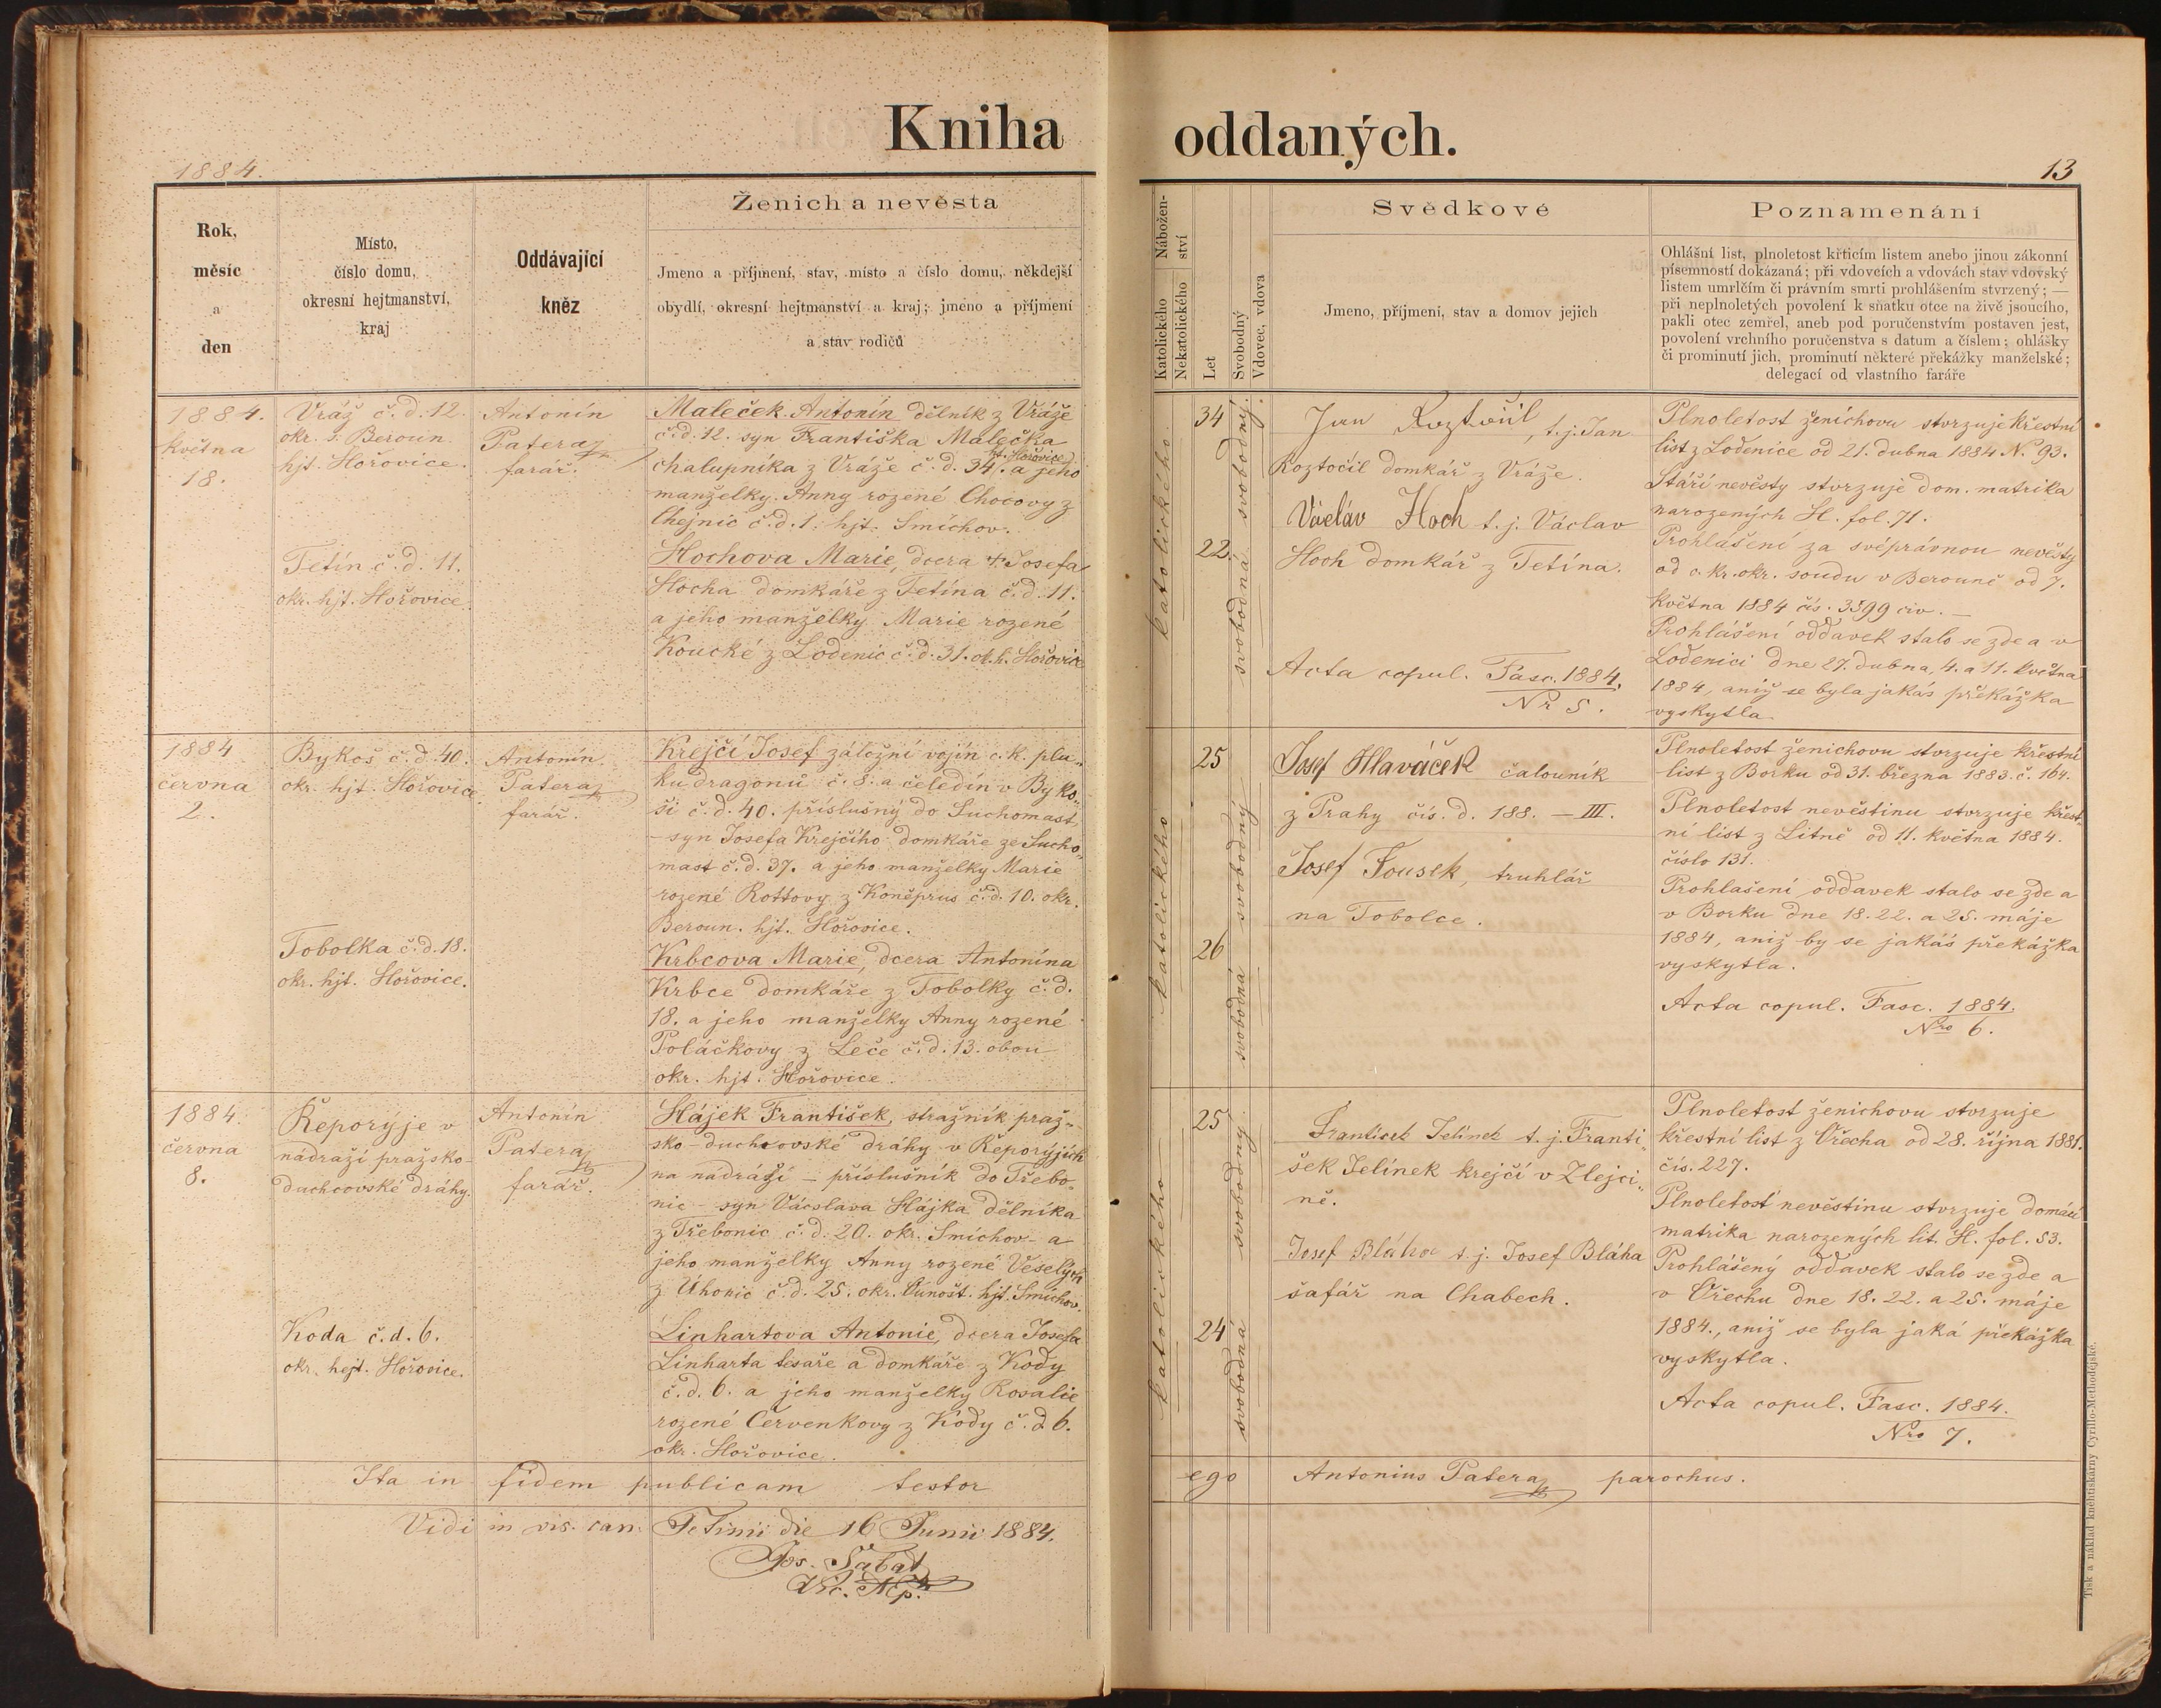 Kniha oddaných.
1884.
13
Rok,
měsíc
a
den
Místo,
číslo domu,
okresní hejtmanství,
kraj
Oddávající
kněz
Ženich a nevěsta
Jmeno a příjmení, stav, místo a číslo domu, někdejší
obydlí, okresní hejtmanství a kraj; jmeno a příjmení
a stav rodičů
Nábožen-
ství
Katolického
Nekatolického
Let
Svobodný
Vdovec, vdova
Svědkové
Jmeno, příjmeni, stav a domov jejich
Poznamenáni
Ohlášní list, plnoletost křticím listem anebo jinou zákonní
písemností dokázaná; při vdovcích a vdovách stav vdovský
listem umrlčím či právním smrti prohlášením stvrzený; —
při neplnoletých povolení k sňatku otce na živě jsoucího,
pakli otec zemřel, aneb pod poručenstvím postaven jest,
povolení vrchního poručenstva s datum a číslem; ohlášky
či prominutí jich, prominutí některé překážky manželské;
delegací od vlastního faráře
1884.
května
18.
Vráž č. d. 12.
okr. s. Beroun
hjt. Hořovice.
Tetín č. d. 11.
okr. hjt. Hořovice.
Antonín
Patera
farář.
Maleček Antonín dělník z Vráže
č. d. 12. syn Františka Malečka
hjt. Hořovice
chalupníka z Vráže č. d. 34. a jeho
manželky Anny rozené Chocovy z
Chejnic č. d. 1. hjt. Smíchov.
Hochova Marie, dcera † Josefa
Hocha domkáře z Tetína č. d. 11.
a jeho manželky Marie rozené
Koucké z Lodenic č. d. 31. ok. h. Hořovice
katolického
34
22
svobodný.
svobodná
Jan Roztočil, t. j. Jan
Roztočil domkář z Vráže.
Václáv Hoch t. j. Václav
Hoch domkář z Tetína.
Acta copul. Fasc. 1884.
Nr 5.
Plnoletost ženichovu stvrzuje křestní
list z Lodenice od 21. dubna 1884 N. 93.
Stáří nevěsty stvrzuje dom. matrika
narozených H. fol. 71.
Prohlášení za svéprávnou nevěsty
od c. kr. okr. soudu v Berouně od 7.
května 1884 čís. 3599 civ. —
Prohlášení oddavek stalo se zde a v
Lodenici dne 27. dubna, 4. a 11. května
1884, aniž se byla jakás překážka
vyskytla.
1884
června
2.
Bykoš č. d. 40.
okr. hjt. Hořovice
Tobolka č. d. 18.
okr. hjt. Hořovice.
Antonín
Patera
farář.
Krejčí Josef záložní vojín c. k. plu„
ku dragonů č. 8. a čeledín v Byko„
ši č. d. 40. příslušný do Suchomast
– syn Josefa Krejčího domkáře ze Sucho„
mast č. d. 37. a jeho manželky Marie
rozené Rottovy z Koněprus č. d. 10. okr.
Beroun. hjt. Hořovice.
Krbcova Marie, dcera Antonína
Krbce domkáře z Tobolky č. d.
18. a jeho manželky Anny rozené
Poláčkovy z Leče č. d. 13. obou
okr. hjt. Hořovice.
katolického
25
26
svobodný
svobodná
Josef Hlaváček čalouník
z Prahy čís. d. 188. – III.
Josef Fousek, truhlář
na Tobolce.
Plnoletost ženichovu stvrzuje křestní
list z Borku od 31. března 1883. č. 164.
Plnoletost nevěstinu stvrzuje křest„
ní list z Litně od 11. května 1884.
číslo 131.
Prohlašení oddavek stalo se zde a
v Borku dne 18. 22. a 25. máje
1884, aniž by se jakás překážka
vyskytla.
Acta copul. Fasc. 1884.
Nro 6.
1884.
června
8.
Řeporyje v
nádraží pražsko-
duchcovské dráhy.
Koda č. d. 6.
okr. hejt. Hořovice.
Antonín
Patera
farář.
Hájek František, stražník praž„
sko-duchcovské dráhy v Řeporyjích
na nádraží – příslušník do Třebo„
nic – syn Vácslava Hájka dělníka
z Třebonic č. d. 20. okr. Smíchov – a
jeho manželky Anny rozené Veselých
z Úhonic č. d. 25. okr. Únošt. hjt. Smíchov.
Linhartova Antonie, dcera Josefa
Linharta tesaře a domkáře z Kody
č. d. 6. a jeho manželky Rosalie
rozené Červenkovy z Kody č. d. 6.
okr. Hořovice.
katolického
25
24
svobodný
svobodná
František Jelínek t. j. Franti„
šek Jelínek krejčí v Zlejci„
ně.
Josef Bláha t. j. Josef Bláha
šafář na Chabech.
Plnoletost ženichovu stvrzuje
křestní list z Ořecha od 28. října 1881.
čís. 227.
Plnoletost nevěstinu stvrzuje domácí
matrika narozených lit. H. fol. 53.
Prohlášený oddavek stalo se zde a
v Ořechu dne 18. 22. a 25. máje
1884., aniž se byla jaká překážka
vyskytla.
Acta copul. Fasc. 1884.
Nro 7.
Ita in fidem publicam testor ego Antonius Patera parochus.
Vidi in vis. can. Tetinii die 16 Junii 1884.
Jos. Šabat
Vic. Mp.
Tisk a náklad kněhtiskárny Cyrillo-Methodějské.